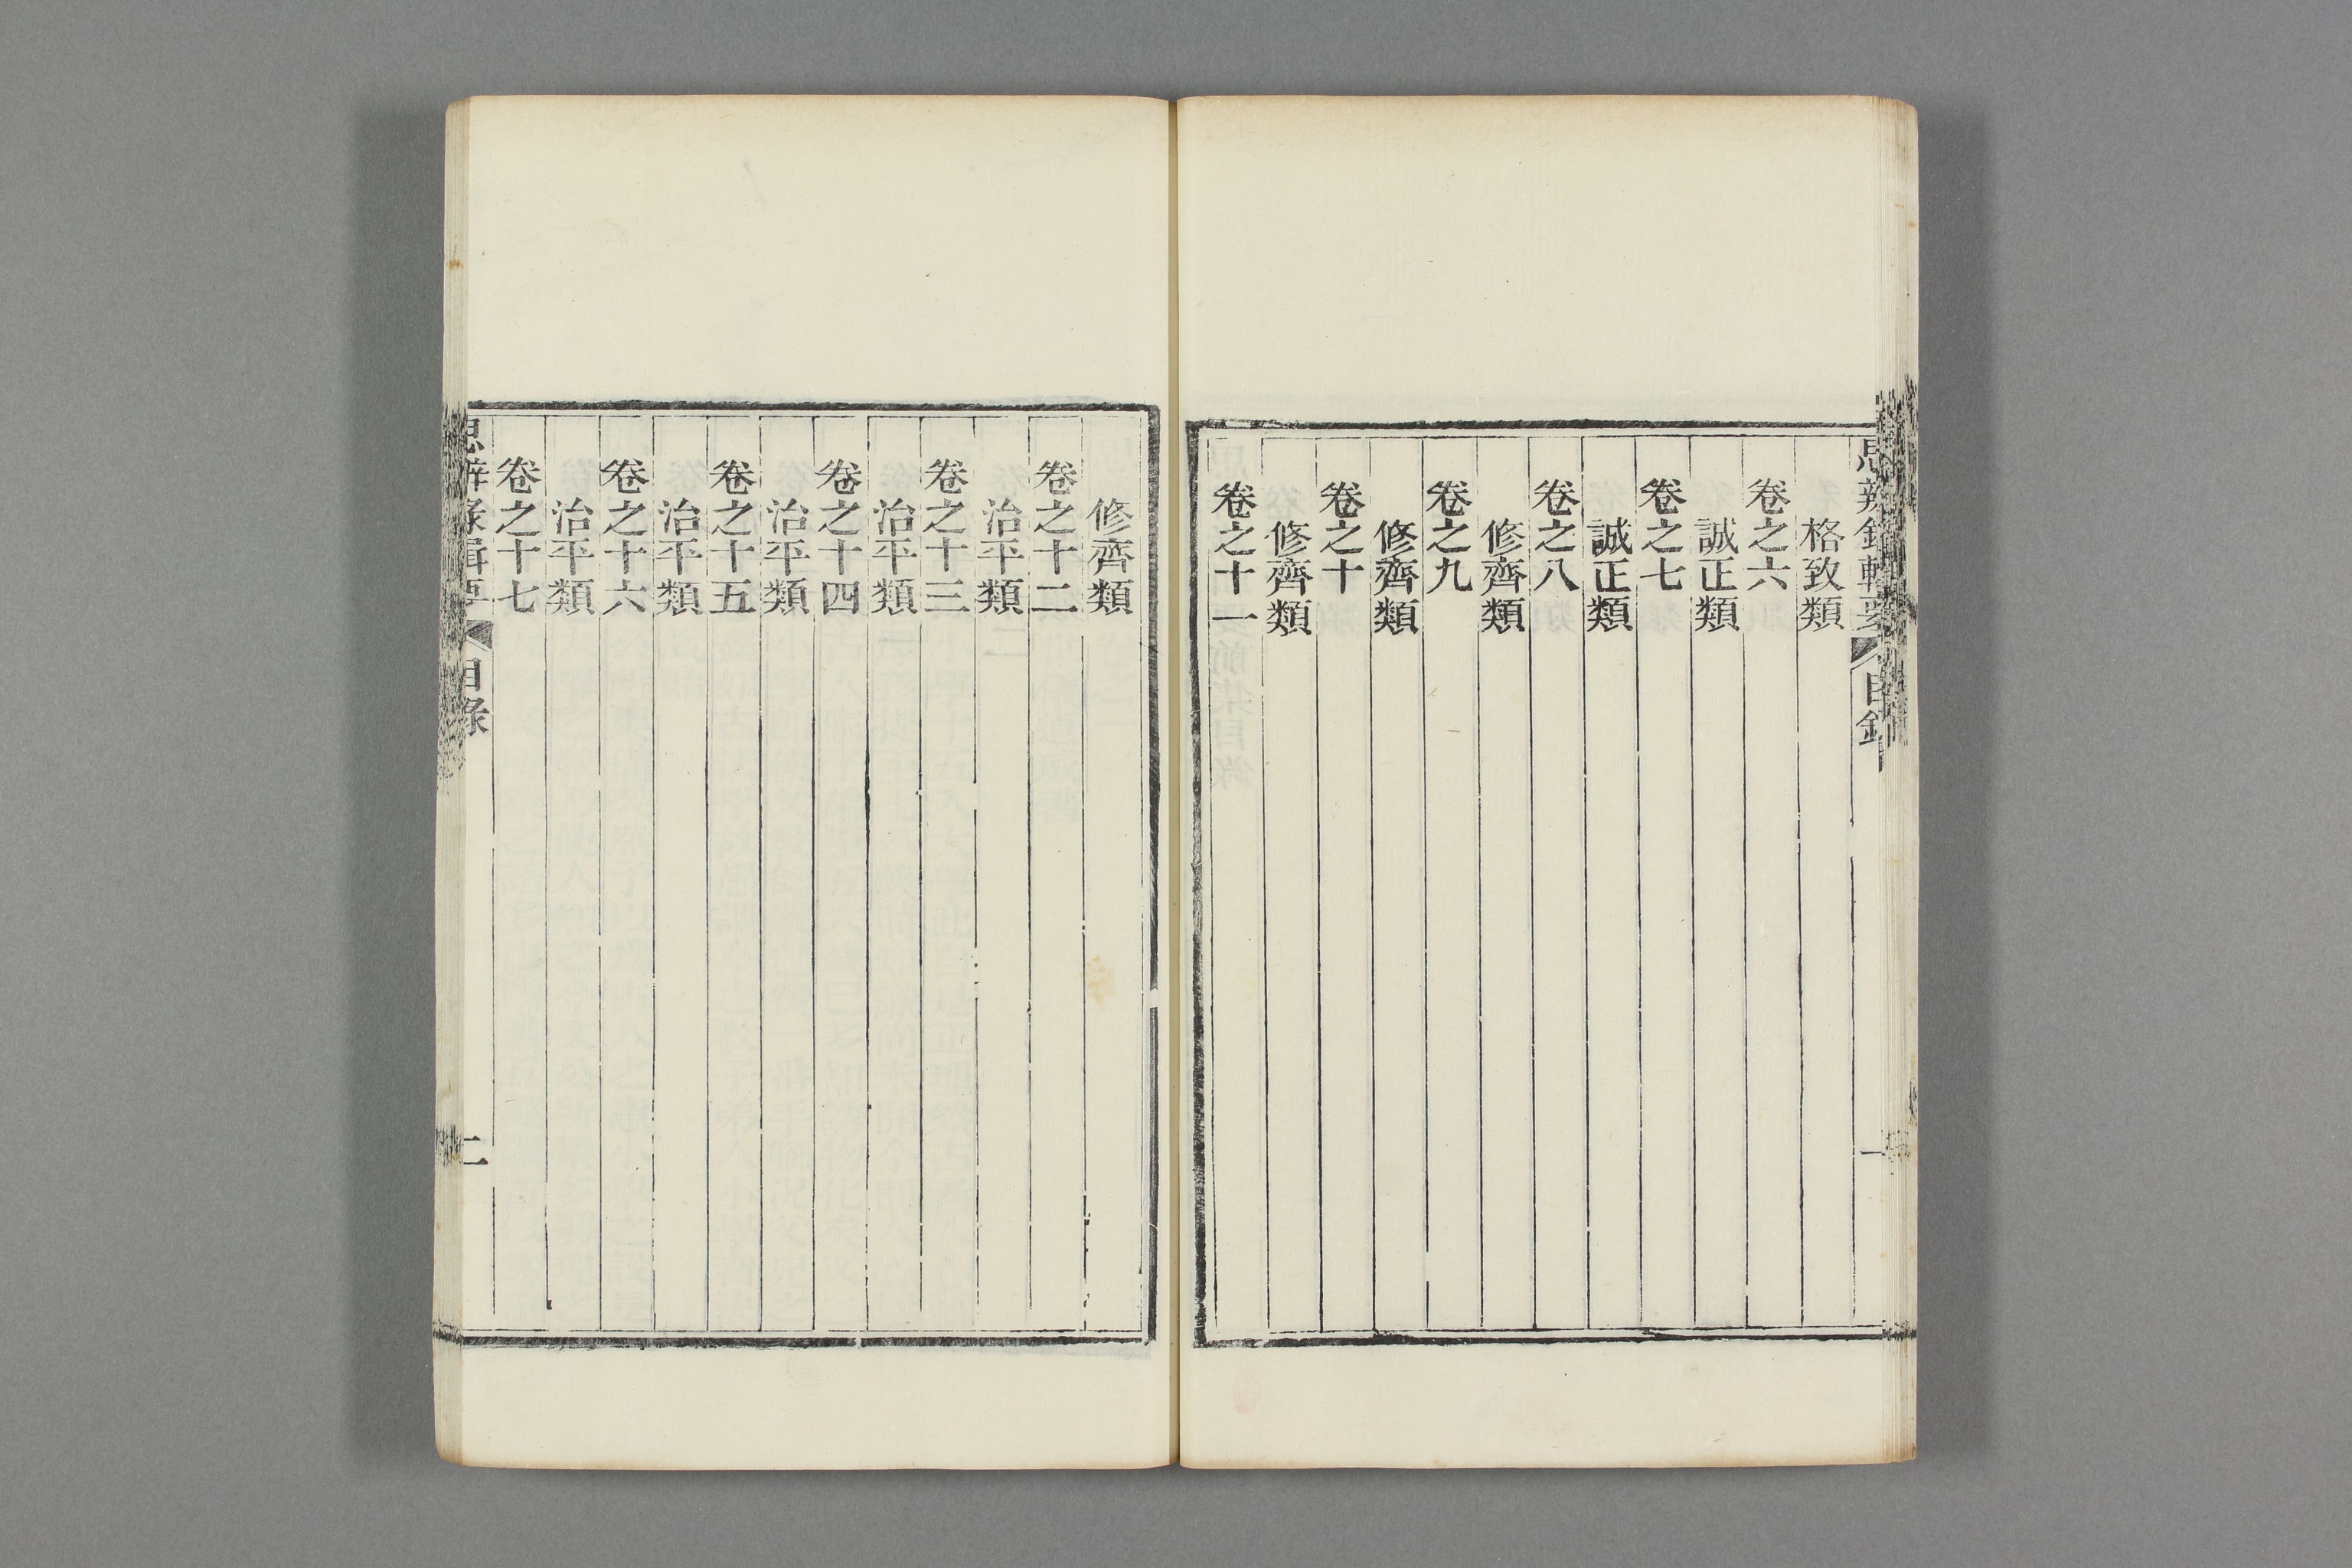 思辨錄輯要 目錄 一
格致類
卷之六
誠正類
卷之七
誠正類
卷之八
修齊類
卷之九
修齊類
卷之十
修齊類
卷之十一
修齊類
卷之十二
治平類
卷之十三
治平類
卷之十四
治平類
卷之十五
治平類
卷之十六
治平類
卷之十七
思辨錄輯要 目錄 二